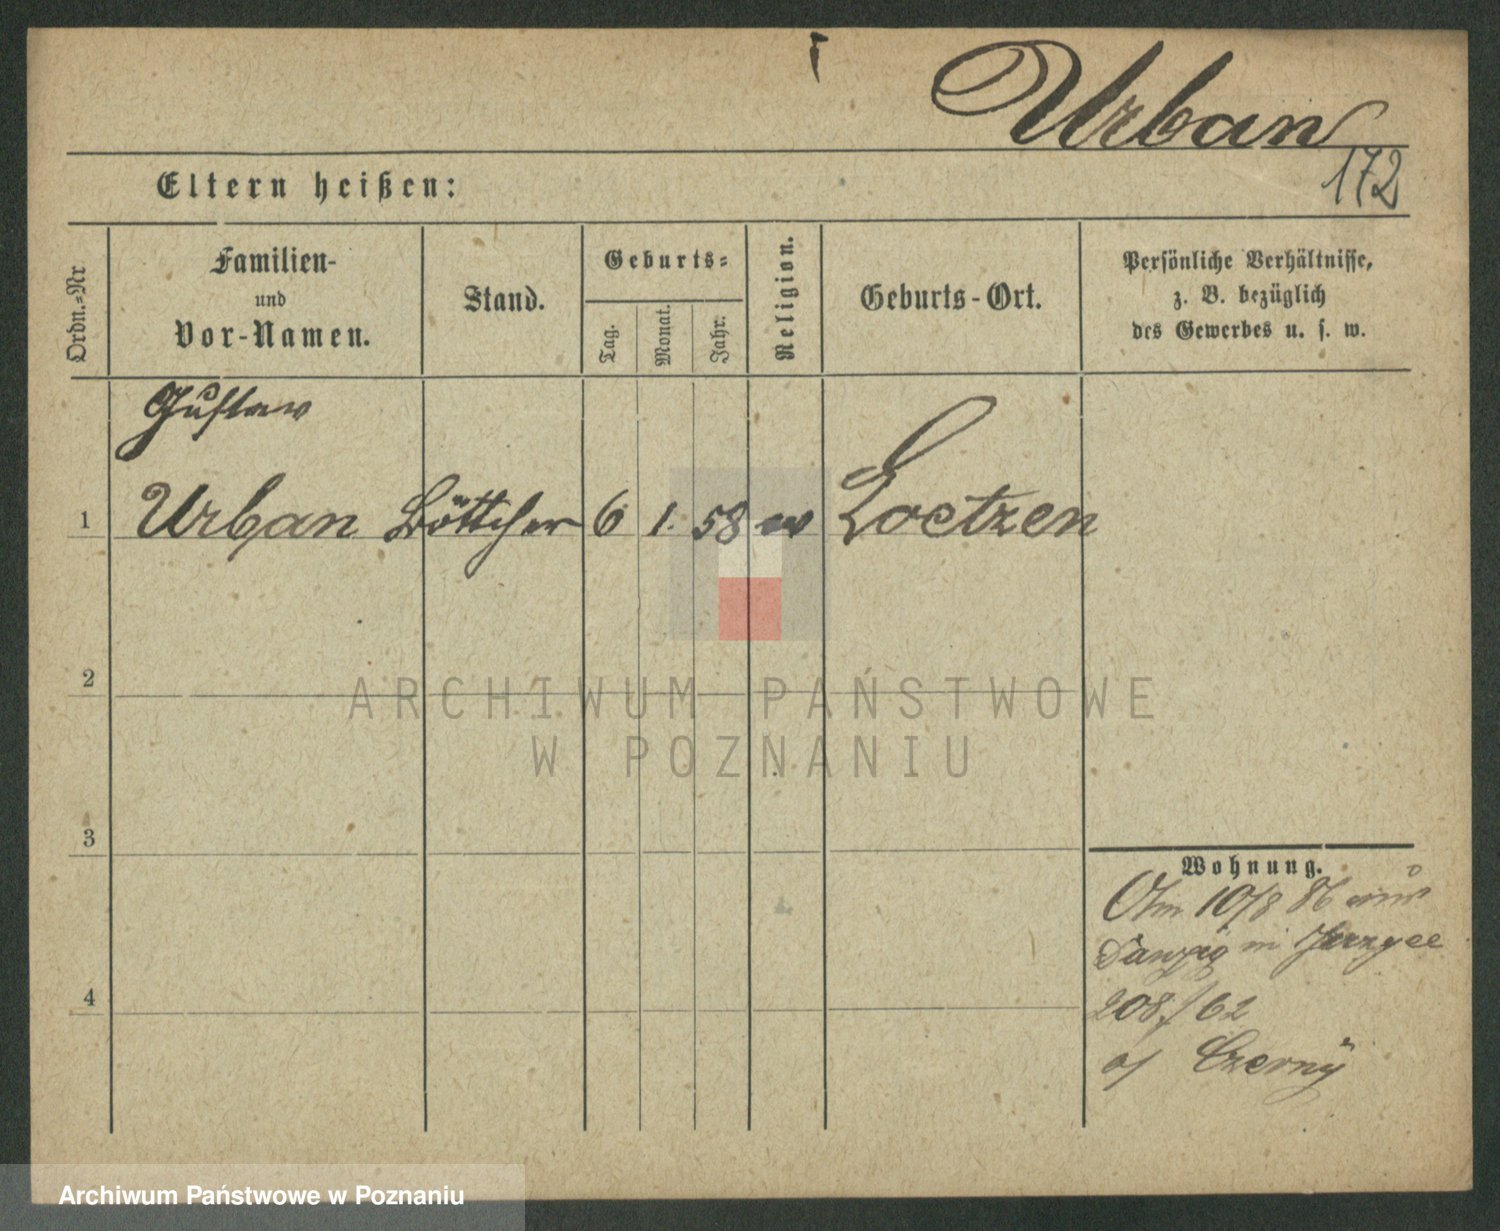 Urban
172
Eltern heißen:
Ordn.-Nr
Familien-
und
Vor-Namen.
Stand.
Geburts-
Tag.
Monat.
Jahr.
Religion.
Geburts-Ort.
Persönliche Verhältnisse,
z. B. bezüglich
des Gewerbes u. s. w.
Gustav
1 Urban Böttcher 6 1. 58 ev Loetzen
2
ARCHIWUM PAŃSTWOWE
W POZNANIU
3
Wohnung.
10/8 86 aus
Danzig in
4
208/62
Czerny
Archiwum Państwowe w Poznaniu